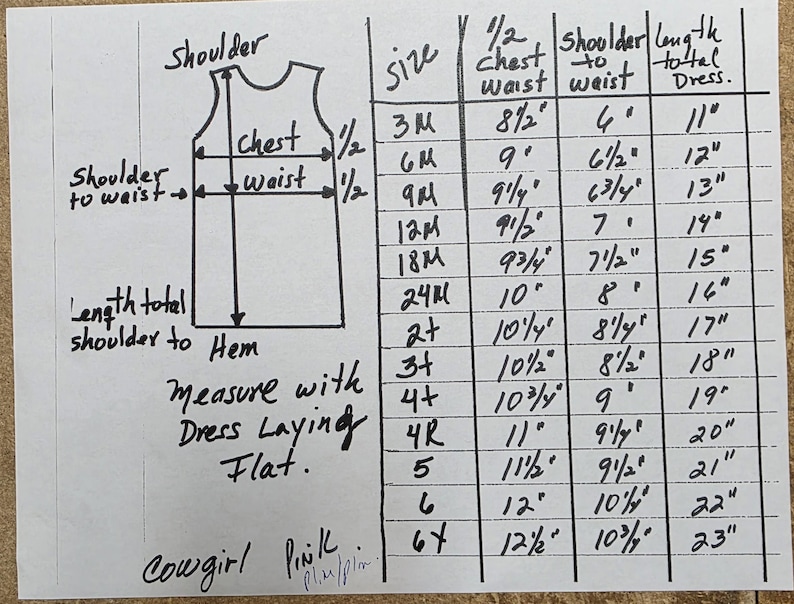 Shoulder
Chest 1/2
Waist 1/2
Shoulder
to waist
Length total
shoulder to Hem
Measure with
Dress Laying
Flat.
Cowgirl Pink
Size 1/2 Chest Waist Shoulder to waist Length total Dress.
3M 8 1/2" 6" 11"
6M 9" 6 1/2" 12"
9M 9 1/4" 6 3/4" 13"
12M 9 1/2" 7" 14"
18M 9 3/4" 7 1/2" 15"
24M 10" 8" 16"
2t 10 1/4" 8 1/4" 17"
3t 10 1/2" 8 1/2" 18"
4t 10 3/4" 9" 19"
4R 11" 9 1/4" 20"
5 11 1/2" 9 1/2" 21"
6 12" 10 1/4" 22"
6X 12 1/2" 10 3/4" 23"